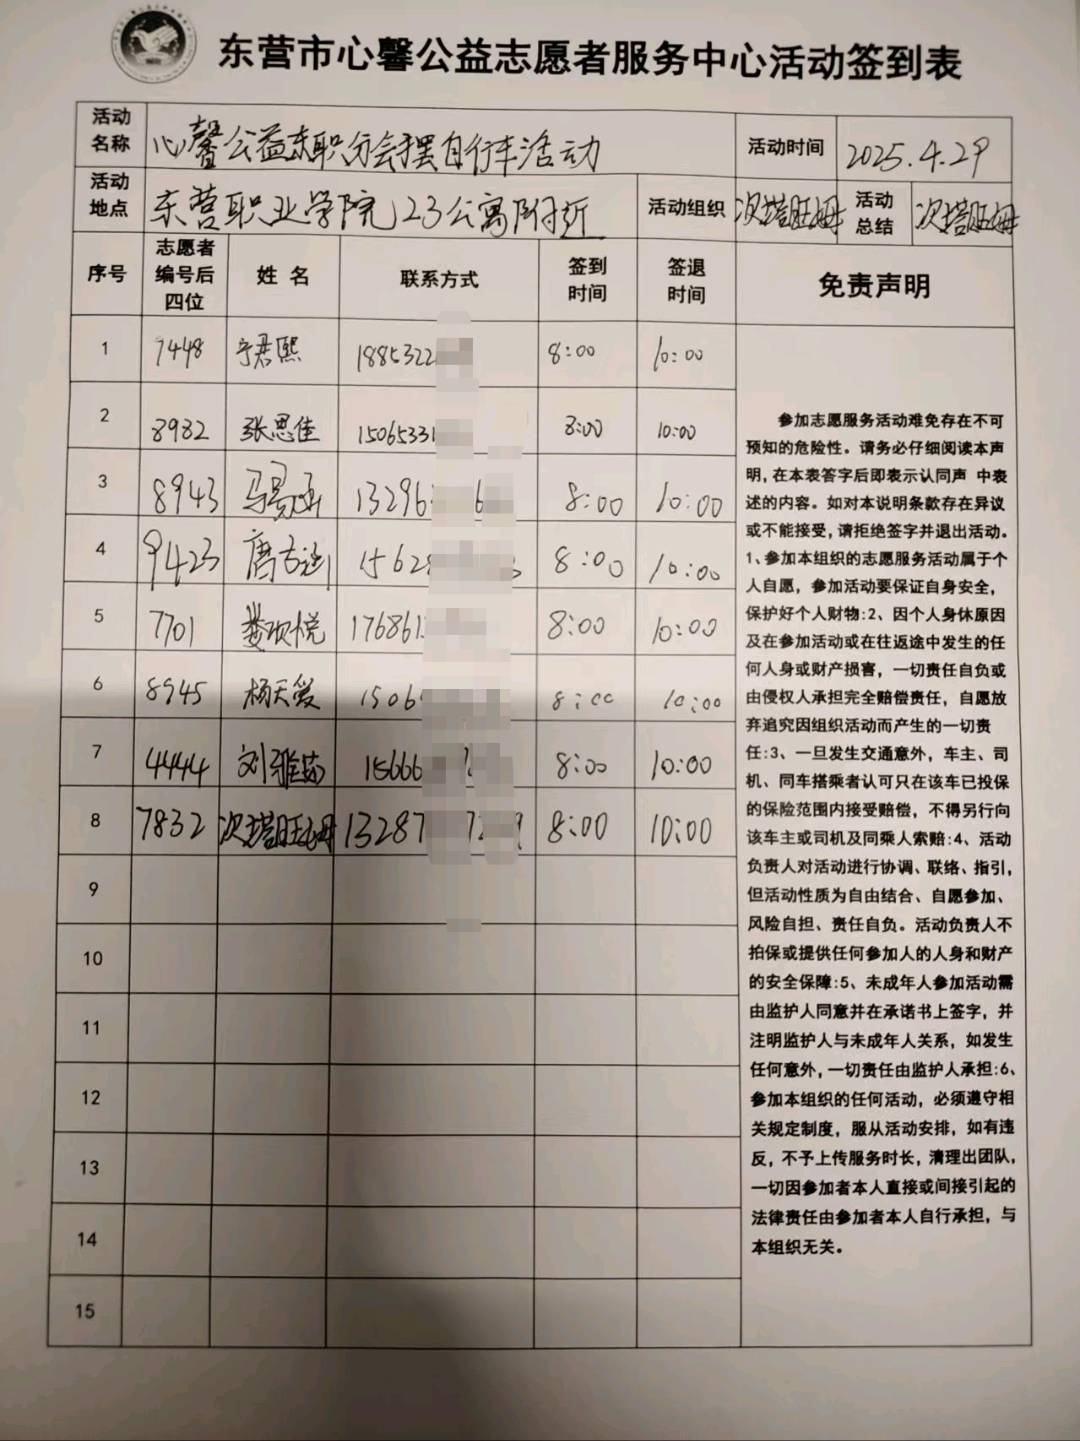 东营市心馨公益志愿者服务中心活动签到表
活动名称 心馨公益东职分会摆自行车活动 活动时间 2025.4.29
活动地点 东营职业学院123公寓附近 活动组织 次塔旺姆 活动总结 次塔旺姆
序号 志愿者编号后四位 姓名 联系方式 签到时间 签退时间 免责声明
1 7448 于君熙 1885322 8:00 10:00
2 8982 张思佳 15065331 8:00 10:00
3 8943 马景涵 13296 6 8:00 10:00
4 9423 唐 1562 3 8:00 10:00
5 7701 娄欣悦 176861 8:00 10:00
6 8945 杨天爱 1506 8:00 10:00
7 4444 刘雅茹 15666 8:00 10:00
8 7832 次塔旺姆 13287 7 9 8:00 10:00
9
10
11
12
13
14
15
参加志愿服务活动难免存在不可
预知的危险性。请务必仔细阅读本声
明,在本表签字后即表示认同声 中表
述的内容。如对本说明条款存在异议
或不能接受,请拒绝签字并退出活动。
1、参加本组织的志愿服务活动属于个
人自愿，参加活动要保证自身安全，
保护好个人财物:2、因个人身休原因
及在参加活动或在往返途中发生的任
何人身或财产损害，一切责任自负或
由侵权人承担完全赔偿责任，自愿放
弃追究因组织活动而产生的一切责
任:3、一旦发生交通意外，车主、司
机、同车搭乘者认可只在该车已投保
的保险范围内接受赔偿，不得另行向
该车主或司机及同乘人索赔:4、活动
负责人对活动进行协调、联络、指引，
但活动性质为自由结合、自愿参加、
风险自担、责任自负。活动负责人不
拍保或提供任何参加人的人身和财产
的安全保障:5、未成年人参加活动需
由监护人同意并在承诺书上签字，并
注明监护人与未成年人关系，如发生
任何意外,一切责任由监护人承担:6、
参加本组织的任何活动，必须遵守相
关规定制度，服从活动安排，如有违
反，不予上传服务时长，清理出团队，
一切因参加者本人直接或间接引起的
法律责任由参加者本人自行承担，与
本组织无关。